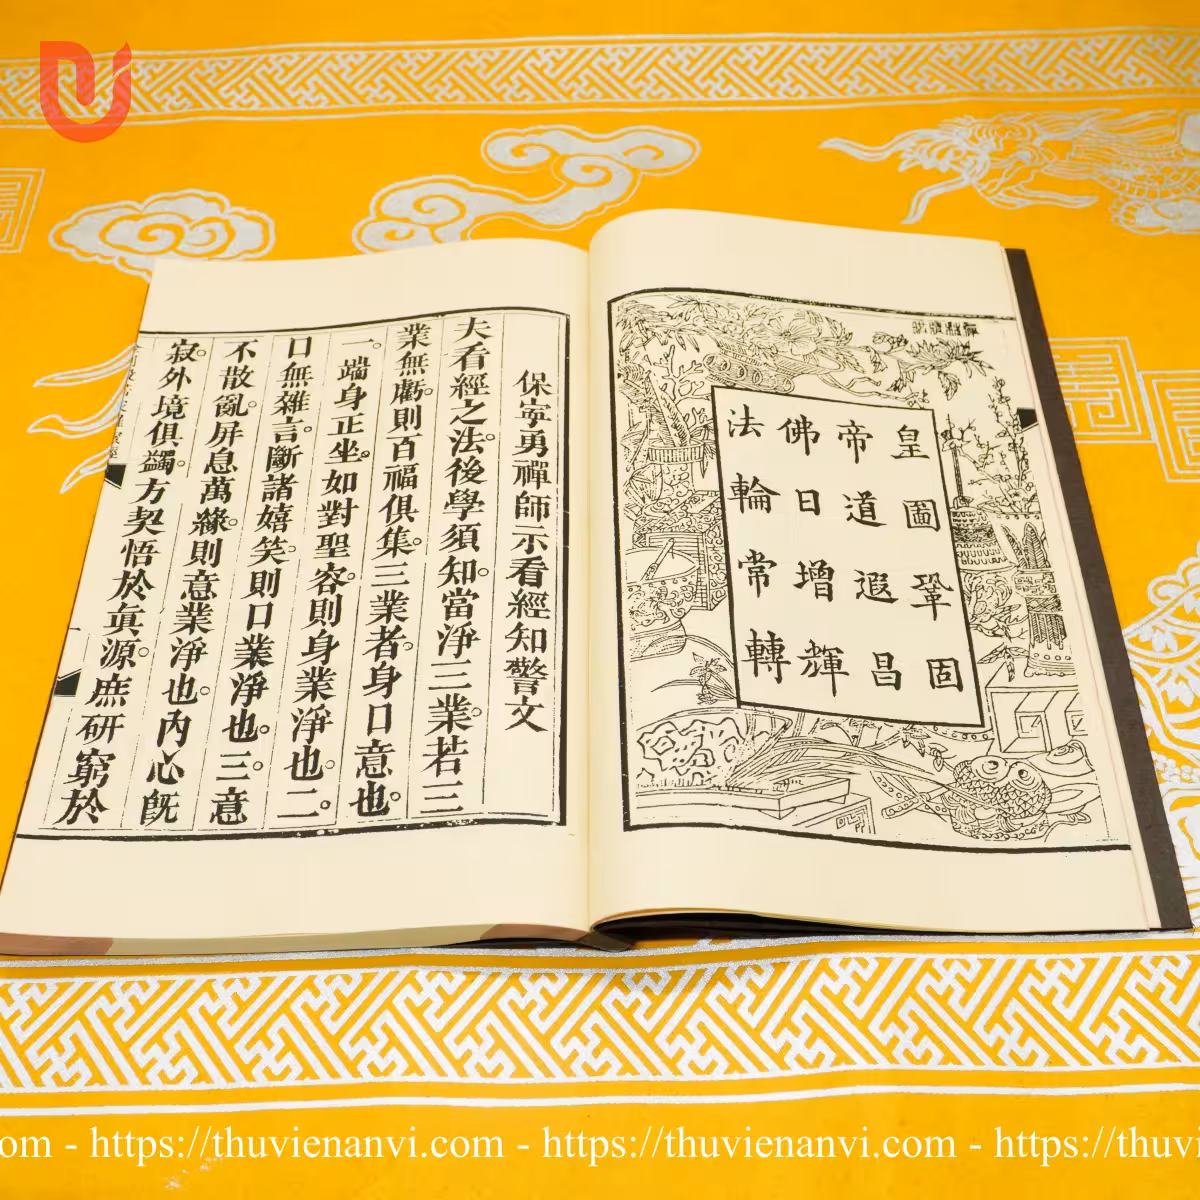 皇圖鞏固
帝道遐昌
佛日增輝
法輪常轉
保寧勇禪師示看經知警文
夫看經之法。後學須知。當淨三業。若三
業無虧。則百福俱集。三業者。身口意也。
一。端身正坐。如對聖容。則身業淨也。二。
口無雜言。斷諸嬉笑。則口業淨也。三。意
不散亂。屏息萬緣。則意業淨也。內心旣
寂。外境俱蠲。方契悟於眞源。庶硏窮於
https://thuvienanvi.com - https://thuvienanvi.com